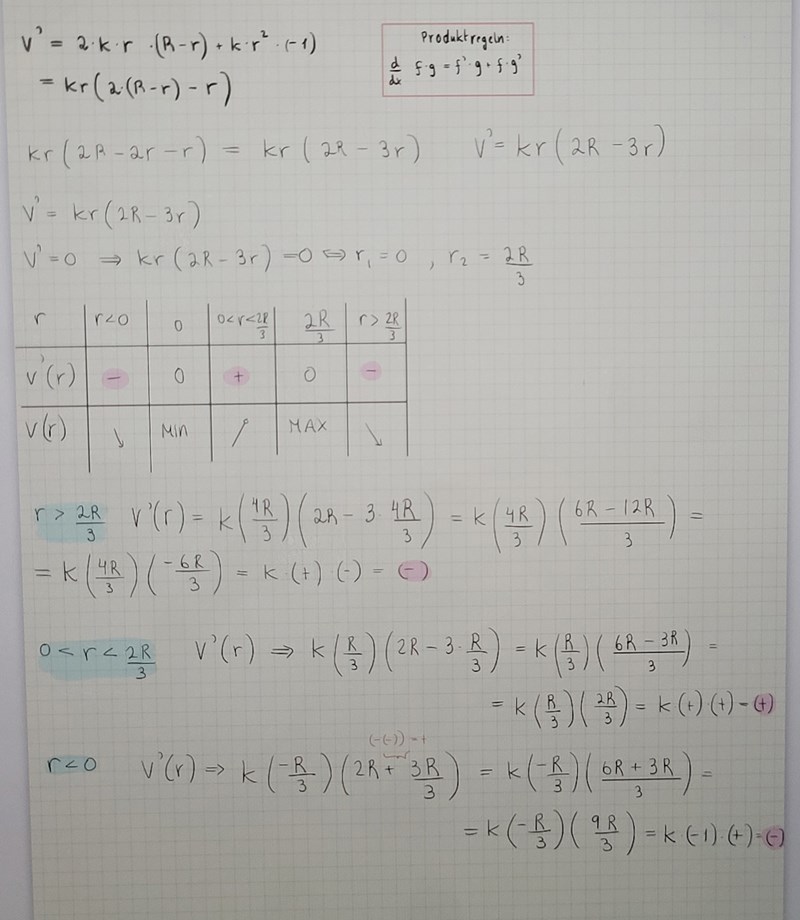 V' = 2·k·r ·(R-r) + k·r² ·(-1)
= kr(2·(R-r) - r)
Produktregeln:
d/dx f·g = f'·g + f·g'
kr(2R-2r-r) = kr(2R-3r) V' = kr(2R-3r)
V' = kr(2R-3r)
V'=0 ⇒ kr(2R-3r) =0 ⇔ r₁=0 , r₂ = 2R/3
r r<0 0 0<r<2R/3 2R/3 r>2R/3
V'(r) - 0 + 0 -
V(r) ↘ MIN ↗ MAX ↘
r > 2R/3 V'(r) = k(4R/3)(2R - 3·4R/3) = k(4R/3)(6R-12R/3) =
= k(4R/3)(-6R/3) = k (+)·(-) = (-)
0 < r < 2R/3 V'(r) ⇒ k(R/3)(2R-3·R/3) = k(R/3)(6R-3R/3) =
= k(R/3)(2R/3) = k(+)(+) = (+)
(-(-)) = +
r<0 V'(r) ⇒ k(-R/3)(2R + 3R/3) = k(-R/3)(6R+3R/3) =
= k(-R/3)(9R/3) = k(-1)·(+) = (-)